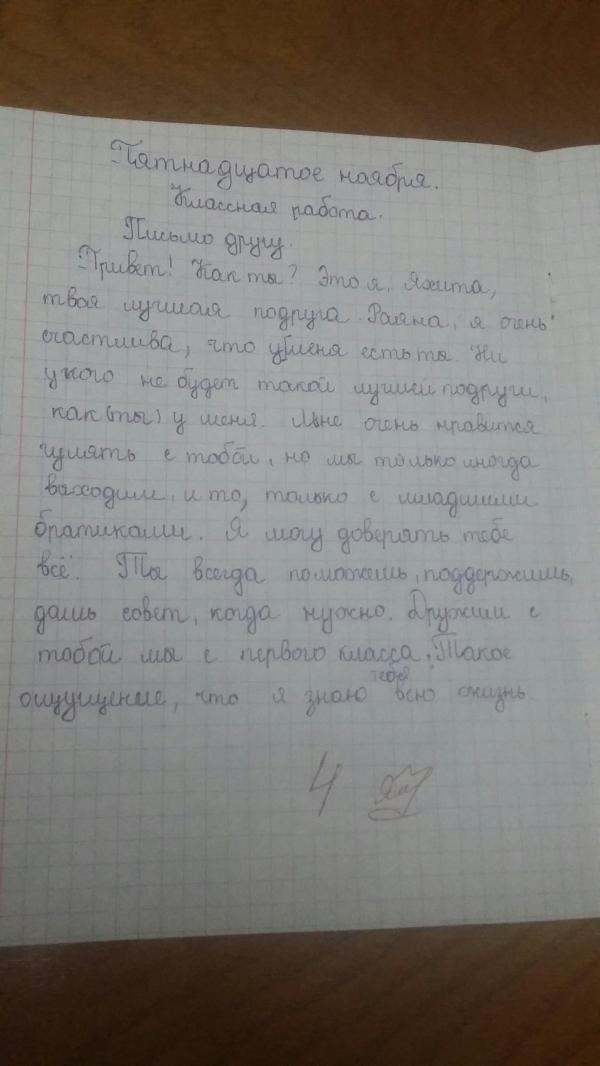 Пятнадцатое ноября.
Классная работа.
Письмо другу.
Привет! Как ты? Это я, Яхита,
твоя лучшая подруга. Раяна, я очень
счастлива, что у меня есть ты. Ни
у кого не будет такой лучшей подруги,
как (ты) у меня. Мне очень нравится
гулять с тобой, но мы только иногда
выходим, и то, только с младшими
братиками. Я могу доверять тебе
всё. Ты всегда поможешь, поддержишь,
дашь совет, когда нужно. Дружим с
тобой мы с первого класса. Такое
ощущение, что я знаю тебя всю жизнь.
4